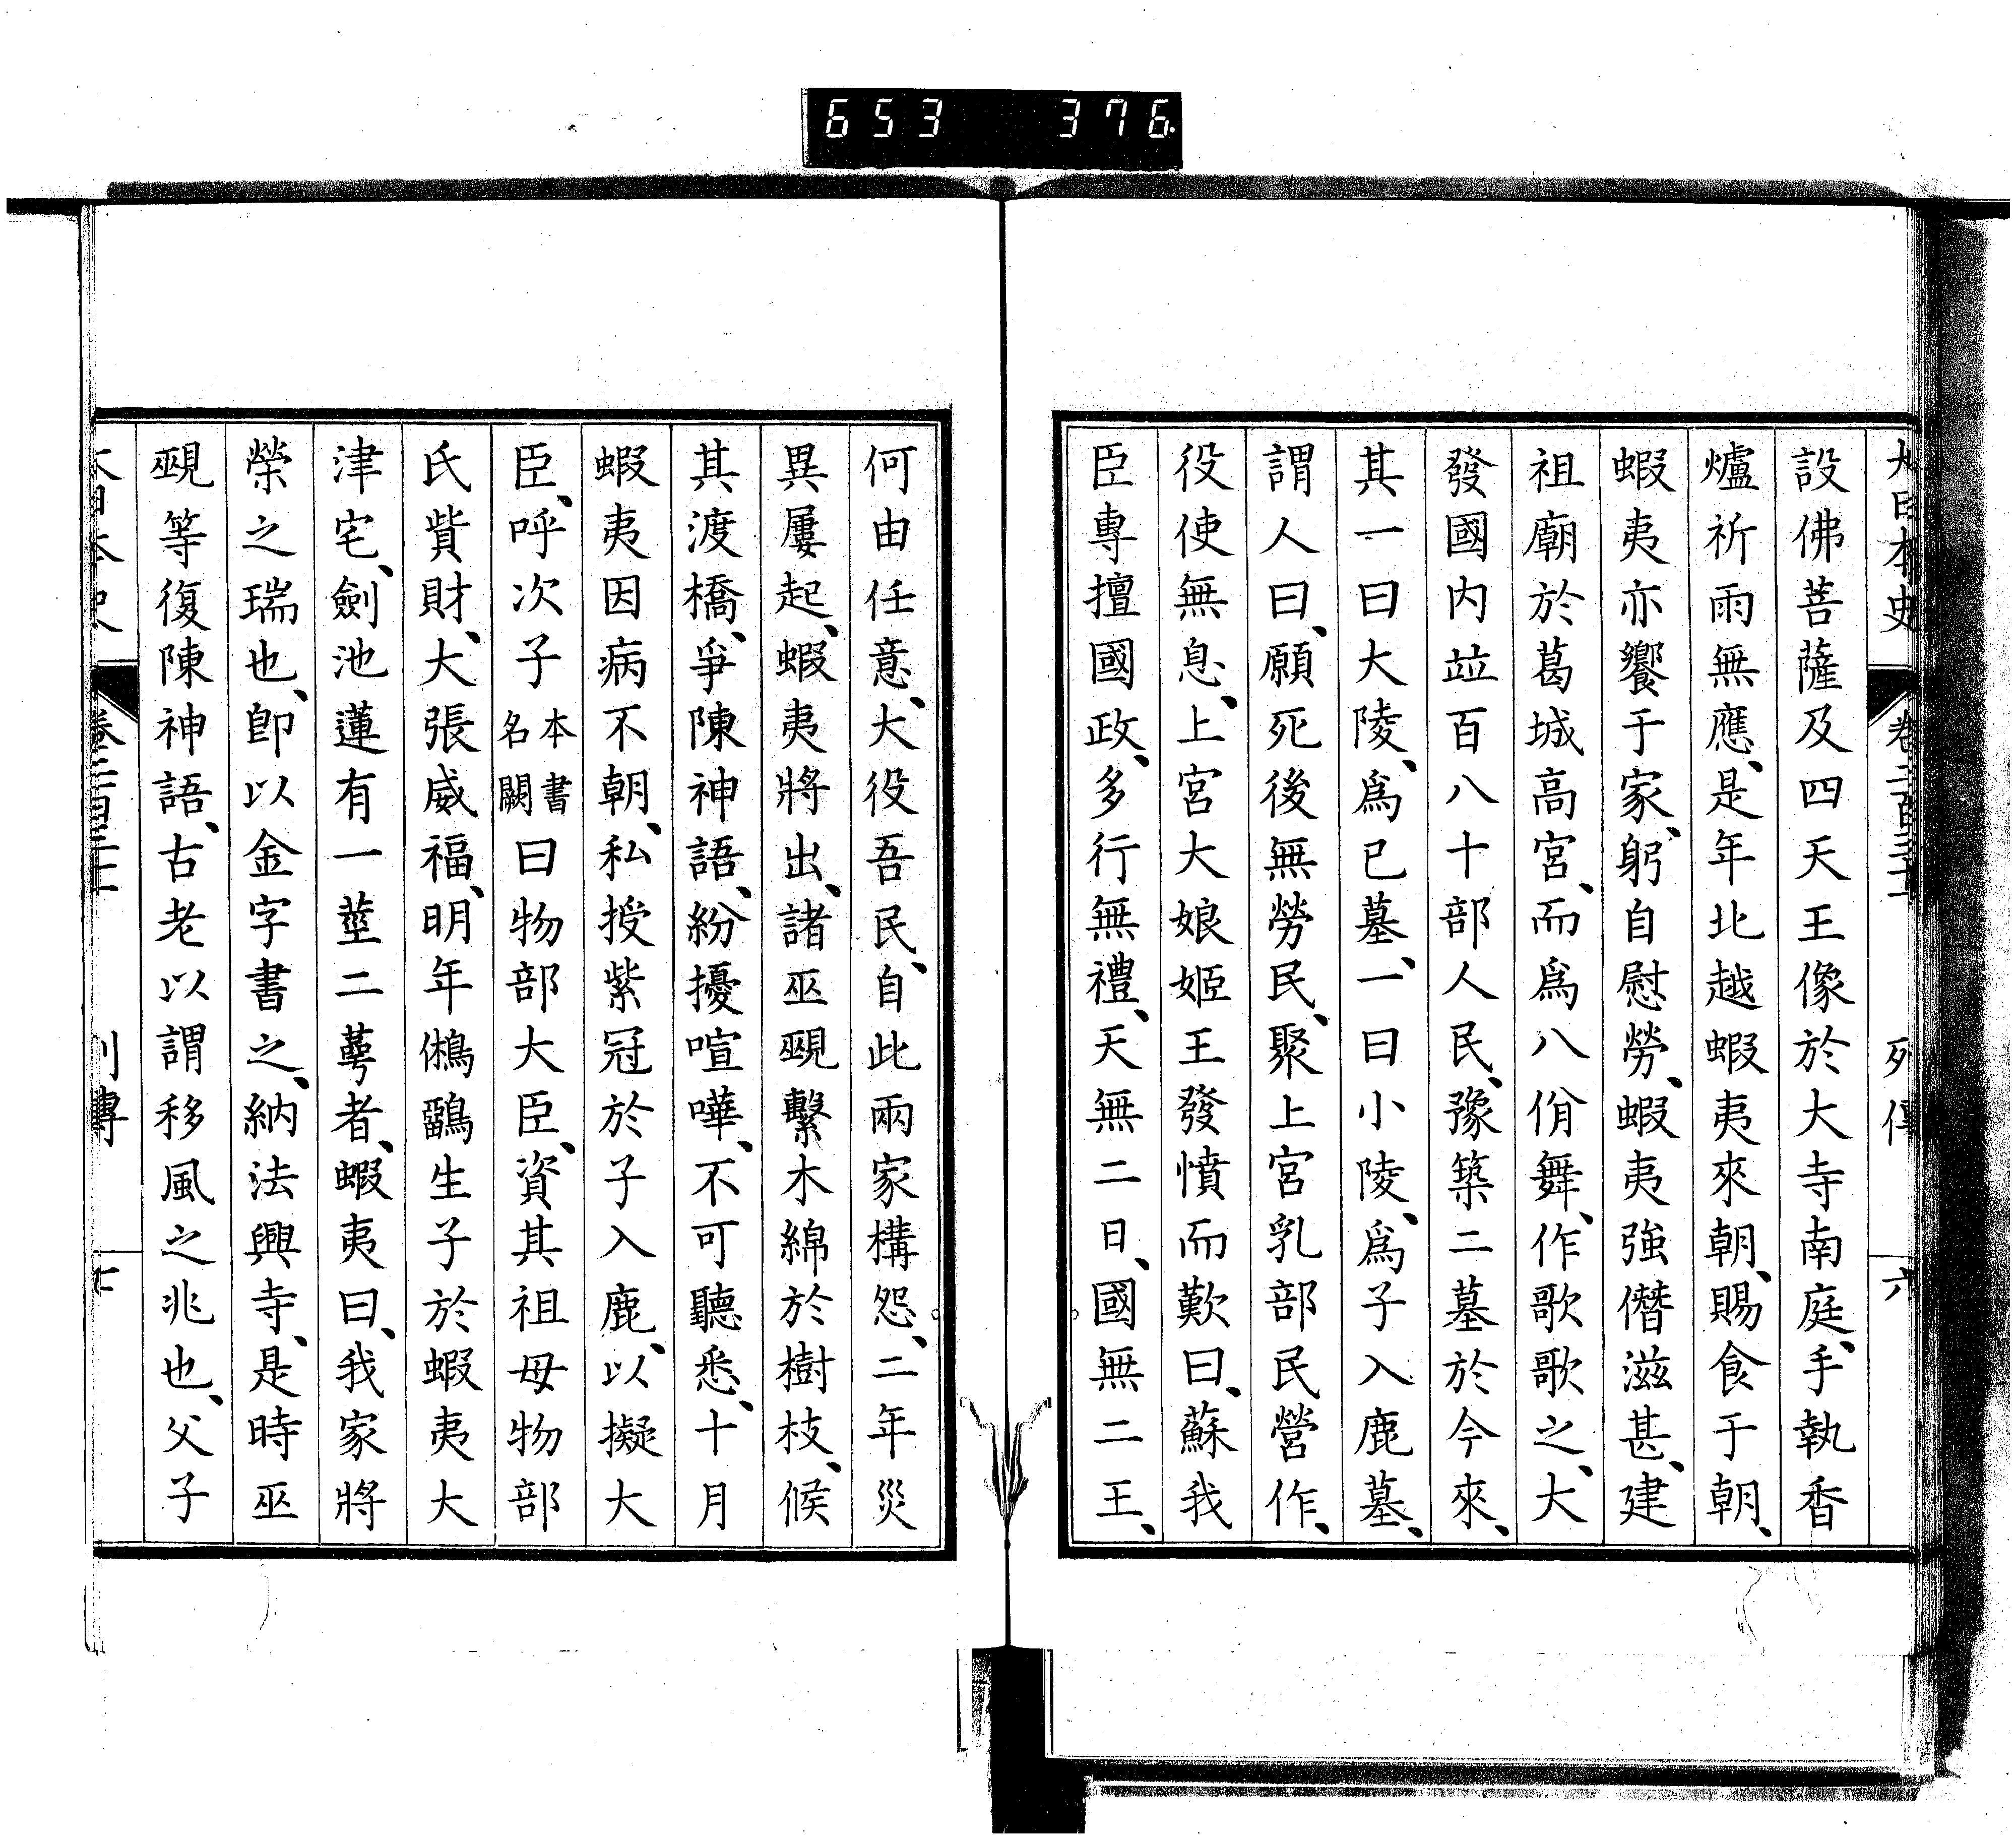 653 376
大日本史 卷二百三十 列傳 六
設佛菩薩及四天王像於大寺南庭、手執香
爐祈雨無應、是年北越蝦夷來朝、賜食于朝、
蝦夷亦饗于家、躬自慰勞、蝦夷強僭滋甚、建
祖廟於葛城高宮、而爲八佾舞、作歌歌之、大
發國內竝百八十部人民、豫築二墓於今來、
其一曰大陵、爲已墓、一曰小陵、爲子入鹿墓、
謂人曰、願死後無勞民、聚上宮乳部民營作、
役使無息、上宮大娘姬王發憤而歎曰、蘇我
臣專擅國政、多行無禮、天無二日、國無二王、
何由任意、大役吾民、自此兩家構怨、二年災
異屢起、蝦夷將出、諸巫覡繫木綿於樹枝、候
其渡橋、爭陳神語、紛擾喧嘩、不可聽悉、十月
蝦夷因病不朝、私授紫冠於子入鹿、以擬大
臣、呼次子本書名闕曰物部大臣、資其祖母物部
氏貲財、大張威福、明年鵂鶹生子於蝦夷大
津宅、劍池蓮有一莖二萼者、蝦夷曰、我家將
榮之瑞也、卽以金字書之、納法興寺、是時巫
覡等復陳神語、古老以謂移風之兆也、父子
大日本史 卷二百三十 列傳 七